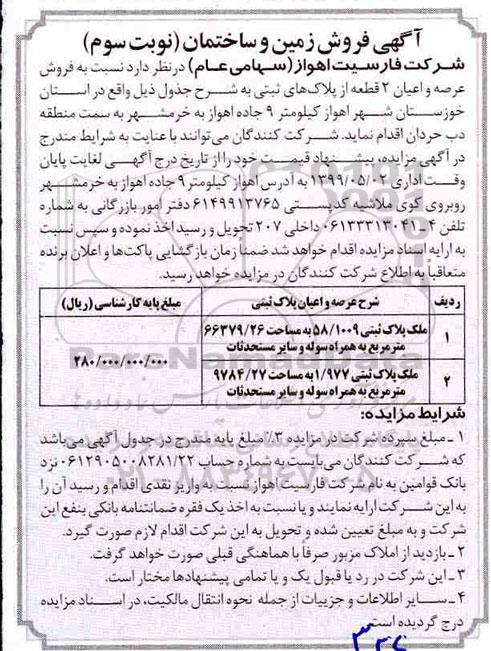 آگهی فروش زمین و ساختمان (نوبت سوم)
شرکت فارسیت اهواز (سهامی عام) در نظر دارد نسبت به فروش
عرصه و اعیان ۲ قطعه از پلاک‌های ثبتی به شرح جدول ذیل واقع در استان
خوزستان شهر اهواز کیلومتر ۹ جاده اهواز به خرمشهر به سمت منطقه
دب حردان اقدام نماید. شرکت کنندگان می‌توانند با عنایت به شرایط مندرج
در آگهی مزایده، پیشنهاد قیمت خود را از تاریخ درج آگهی لغایت پایان
وقت اداری ۱۳۹۹/۰۵/۰۲ به آدرس اهواز کیلومتر ۹ جاده اهواز به خرمشهر
روبروی کوی ملاشیه کدپستی ۶۱۴۹۹۱۳۷۶۵ دفتر امور بازرگانی به شماره
تلفن ۴ـ۰۶۱۳۳۳۱۳۰۴۱ داخلی ۲۰۷ تحویل و رسید اخذ نموده و سپس نسبت
به ارایه اسناد مزایده اقدام خواهد شد ضمناً زمان بازگشایی پاکت‌ها و اعلان برنده
متعاقباً به اطلاع شرکت کنندگان در مزایده خواهد رسید.
ردیف شرح عرصه و اعیان پلاک ثبتی مبلغ پایه کارشناسی (ریال)
۱ ملک پلاک ثبتی ۵۸/۱۰۰۹ به مساحت ۶۶۳۷۹/۲۶
متر مربع به همراه سوله و سایر مستحدثات
۲۸۰/۰۰۰/۰۰۰/۰۰۰
۲ ملک پلاک ثبتی ۱/۹۷۷ به مساحت ۹۷۸۴/۲۷
متر مربع به همراه سوله و سایر مستحدثات
شرایط مزایده:
۱ ـ مبلغ سپرده شرکت در مزایده ۳٪ مبلغ پایه مندرج در جدول آگهی می‌باشد
که شرکت کنندگان می‌بایست به شماره حساب ۰۶۱۲۹۰۵۰۰۸۲۸۱/۲۲ نزد
بانک قوامین به نام شرکت فارسیت اهواز نسبت به واریز نقدی اقدام و رسید آن را
به این شرکت ارایه نمایند و یا نسبت به اخذ یک فقره ضمانتنامه بانکی بنفع این
شرکت و به مبلغ تعیین شده و تحویل به این شرکت اقدام لازم صورت گیرد.
۲ ـ بازدید از املاک مزبور صرفاً با هماهنگی قبلی صورت خواهد گرفت.
۳ ـ این شرکت در رد یا قبول یک و یا تمامی پیشنهادها مختار است.
۴ ـ سایر اطلاعات و جزییات از جمله نحوه انتقال مالکیت، در اسناد مزایده
درج گردیده است.